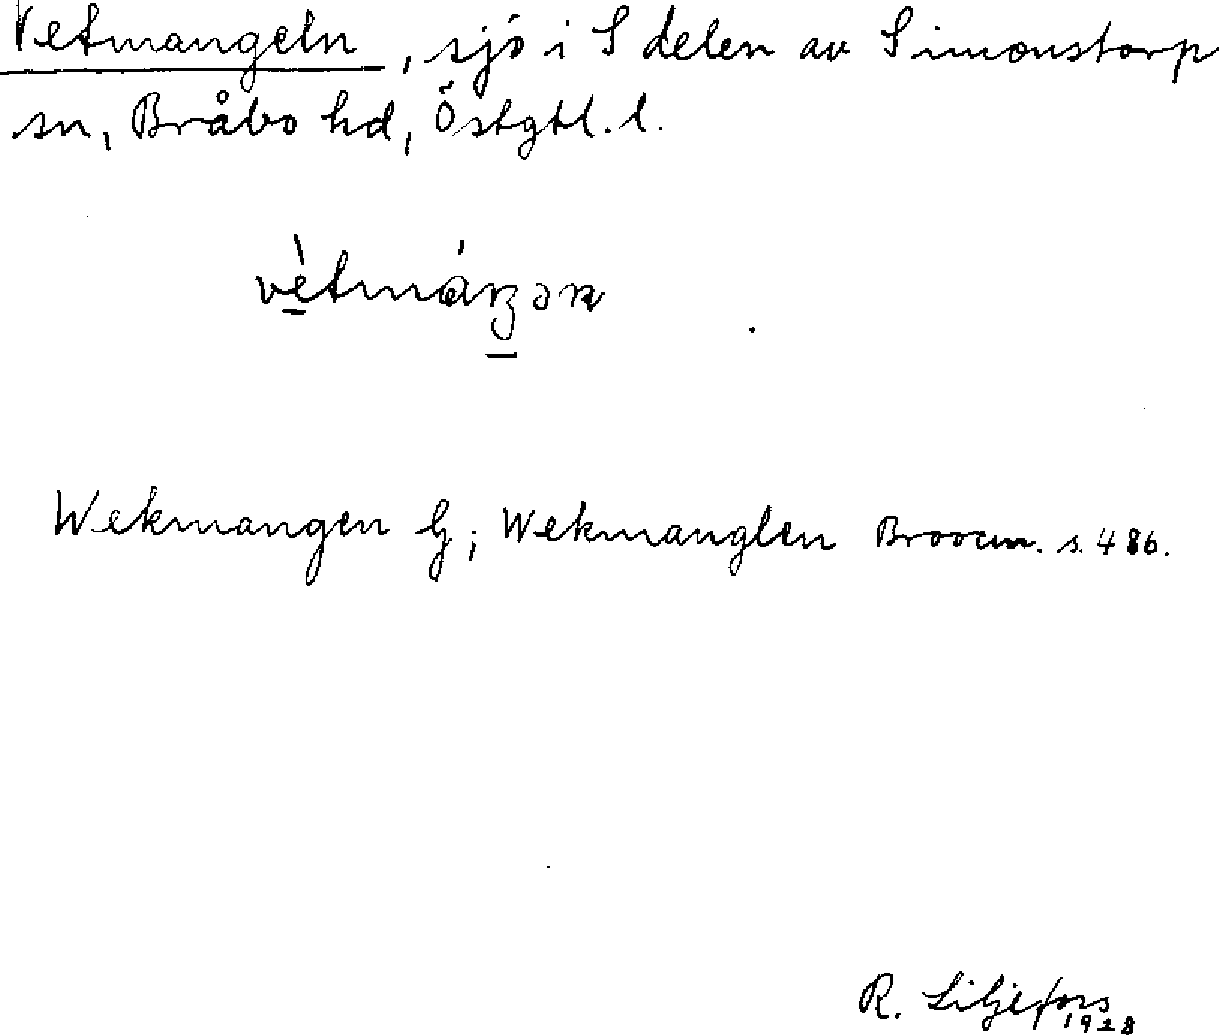 Vetmangeln, sjö i S delen av Simonstorp
sn, Bråbo hd, Östgtl. l.
vètmáŋən
Wekmangen G; Wekmanglen Broocm. s. 486.
R. Liljefors
1928